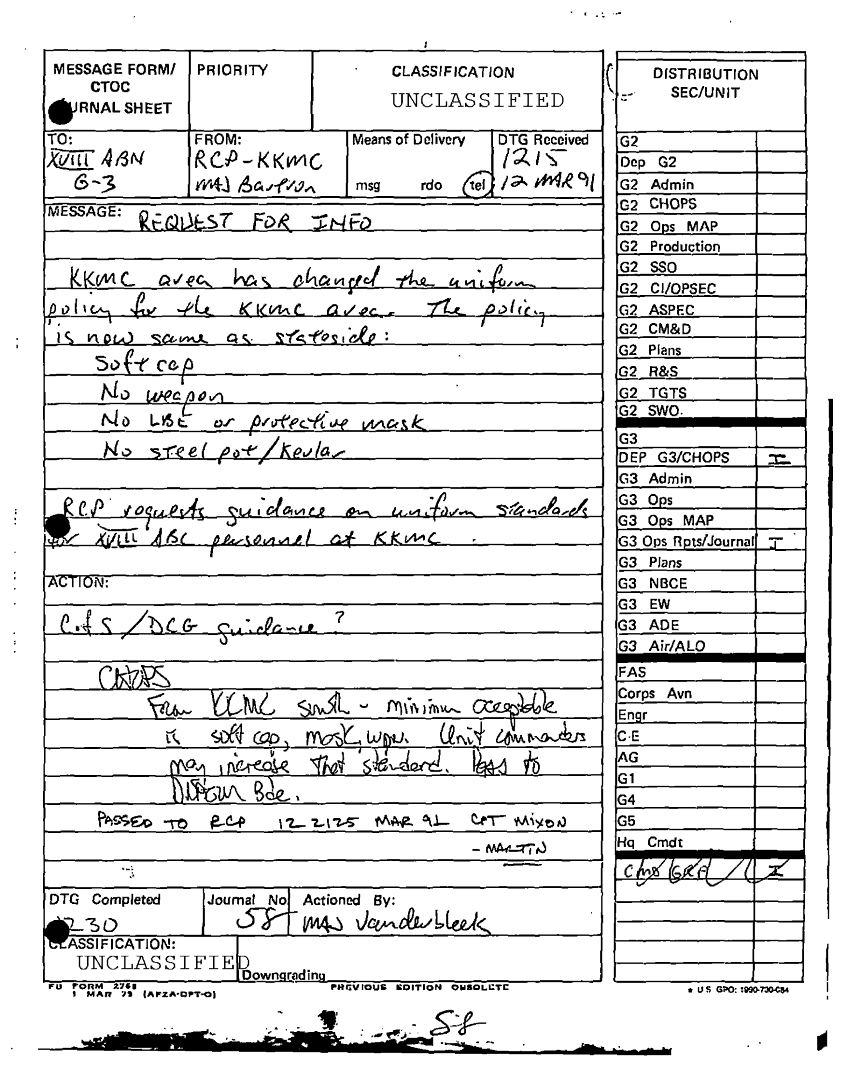 MESSAGE FORM/
CTOC
URNAL SHEET
PRIORITY
CLASSIFICATION
UNCLASSIFIED
TO:
XVIII ABN
G-3
FROM:
RCP-KKMC
MAJ
Means of Delivery
msg rdo tel
DTG Received
1215
12 MAR 91
MESSAGE:
REQUEST FOR INFO
KKMC area has changed the uniform
policy for the KKMC area. The policy
is now same as stateside:
Soft cap
No weapon
No LBE or protective mask
No steel pot/Kevlar
RCP requests guidance on uniform standards
for XVIII ABC personnel at KKMC.
ACTION:
CofS/DCG guidance?
CHOPS
From KKMC south - minimum acceptable
is soft cap, mask, wpn. Unit commanders
may increase that standard. Pass to
Bde.
PASSED TO RCP 12 2125 MAR 91 CPT MIXON
- MARTIN
DTG Completed
1230
Journal No
58
Actioned By:
MAJ Vanderbleek
CLASSIFICATION:
UNCLASSIFIED
Downgrading
FB FORM 2768
1 MAR 79 (AFZA-DPT-O)
PREVIOUS EDITION OBSOLETE
DISTRIBUTION
SEC/UNIT
G2
Dep G2
G2 Admin
G2 CHOPS
G2 Ops MAP
G2 Production
G2 SSO
G2 CI/OPSEC
G2 ASPEC
G2 CM&D
G2 Plans
G2 R&S
G2 TGTS
G2 SWO.
G3
DEP G3/CHOPS I
G3 Admin
G3 Ops
G3 Ops MAP
G3 Ops Rpts/Journal I
G3 Plans
G3 NBCE
G3 EW
G3 ADE
G3 Air/ALO
FAS
Corps Avn
Engr
C-E
AG
G1
G4
G5
Hq Cmdt
Cmd GRP I
★ U S GPO: 1990-730-084
58